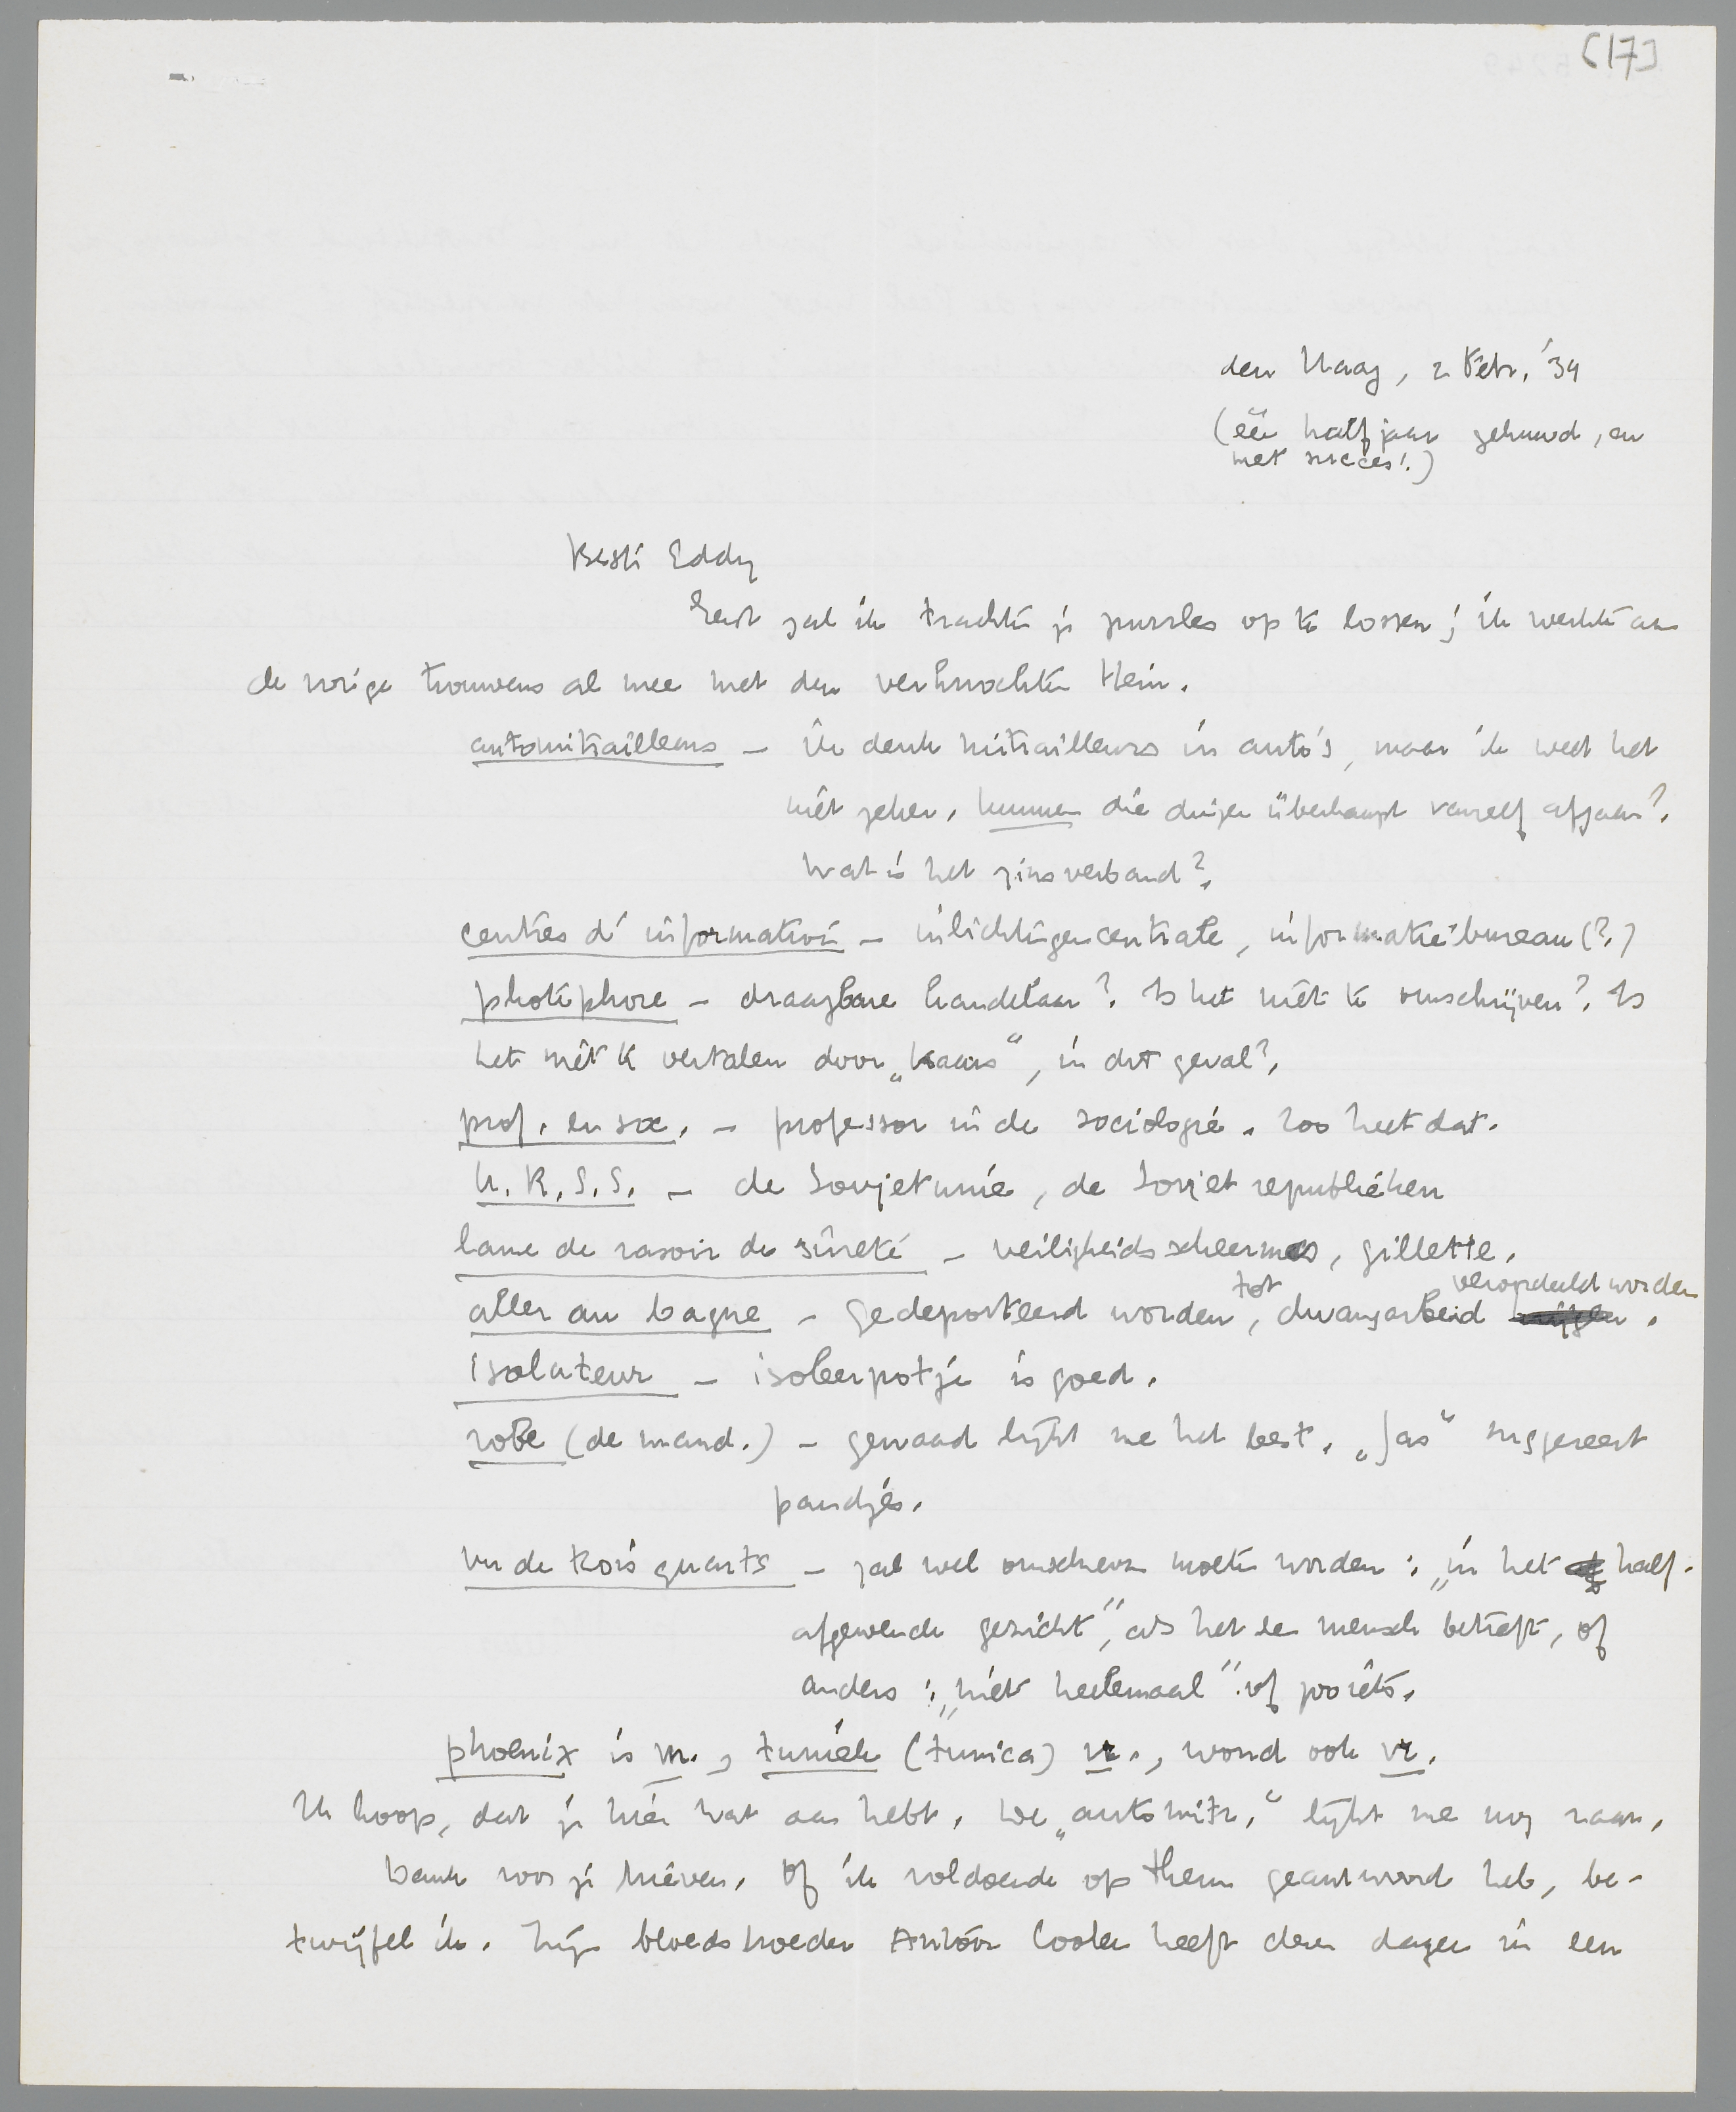 [17]
den Haag, 2 Febr. '34
(één half jaar gehuwd, en
met succes!)
Beste Eddy
Eerst zal ik trachten je puzzles op te lossen; ik werkte aan
de vorige trouwens al mee met den verknochten Hein.
automitrailleuses – ik denk mitrailleurs in auto's, maar ik weet het
niet zeker. kunnen die dingen überhaupt vanzelf afgaan?
Wat is het zinsverband?
centres d'information – inlichtingencentrale, informatiebureau (?)
photophore – draagbare kandelaar? Is het niet te omschrijven? Is
het niet te vertalen door „kaars", in dit geval?
prof. en soc. – professor in de sociologie. Zoo heet dat.
U.R.S.S. – de Sovjetunie, de Sovjet republieken
lame de rasoir de sûreté – veiligheidsscheermes, gillette.
aller au bagne – gedeporteerd worden, tot dwangarbeid veroordeeld worden.
isolateur – isoleerpotje is goed.
robe (de mand.) – gewaad lijkt me het best. „Jas" suggereert
pandjes.
vu de trois quarts – zal wel omschreven moeten worden: „in het half-
afgewende gezicht", als het een mensch betreft, of
anders: „niet heelemaal" of zooiets.
phoenix is m., tuniek (tunica) vr., wond ook vr.
Ik hoop, dat je hier wat aan hebt. De „automitr." lijkt me nog raar.
Dank voor je brieven. Of ik voldoende op them geantwoord heb, be-
twijfel ik. Mijn bloedsbroeder Antoon Coolen heeft dezer dagen in een